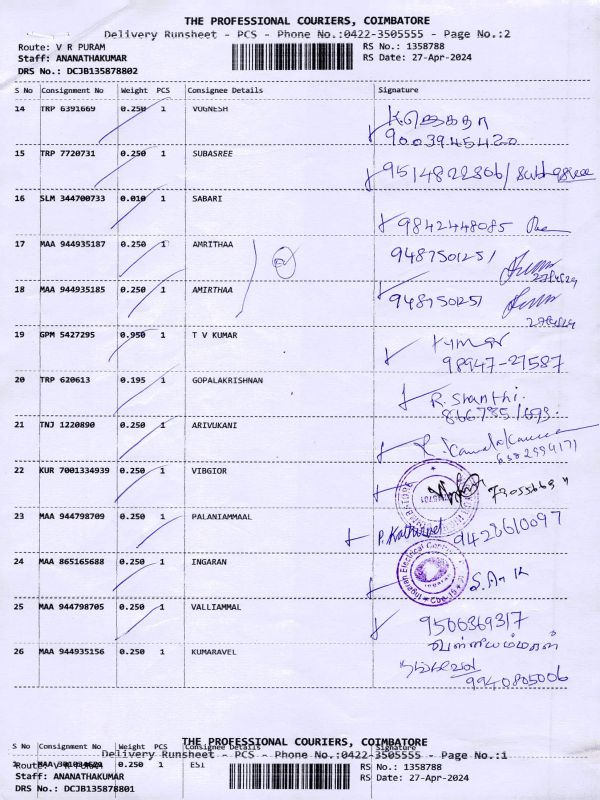 THE PROFESSIONAL COURIERS, COIMBATORE
Delivery Runsheet - PCS - Phone No.:0422-3505555 - Page No.:2
Route: V R PURAM RS No.: 1358788
Staff: ANANATHAKUMAR RS Date: 27-Apr-2024
DRS No.: DCJB135878802
S No Consignment No Weight PCS Consignee Details Signature
14 TRP 6391669 0.250 1 VUGNESH
9003945420
15 TRP 7720731 0.250 1 SUBASREE 9514822806/
16 SLM 344700733 0.010 1 SABARI 9842448085
17 MAA 944935187 0.250 1 AMRITHAA 9487501251
27/4/24
18 MAA 944935185 0.250 1 AMIRTHAA 9487501251
27/4/24
19 GPM 5427295 0.950 1 T V KUMAR Kumar
98947-27587
20 TRP 620613 0.195 1 GOPALAKRISHNAN R. Shanthi.
21 TNJ 1220890 0.250 1 ARIVUKANI
6382994171
22 KUR 7001334939 0.250 1 VIBGIOR
23 MAA 944798709 0.250 1 PALANIAMMAAL P. Kathirvel 9428610097
24 MAA 865165688 0.250 1 INGARAN
25 MAA 944798705 0.250 1 VALLIAMMAL 9500369317
வள்ளியம்மாள்
26 MAA 944935156 0.250 1 KUMARAVEL
9940805006
THE PROFESSIONAL COURIERS, COIMBATORE
S No Consignment No Weight PCS Consignee Details Signature
Delivery Runsheet - PCS - Phone No.:0422-3505555 - Page No.:1
Route: V R PURAM ESI RS No.: 1358788
Staff: ANANATHAKUMAR RS Date: 27-Apr-2024
DRS No.: DCJB135878801